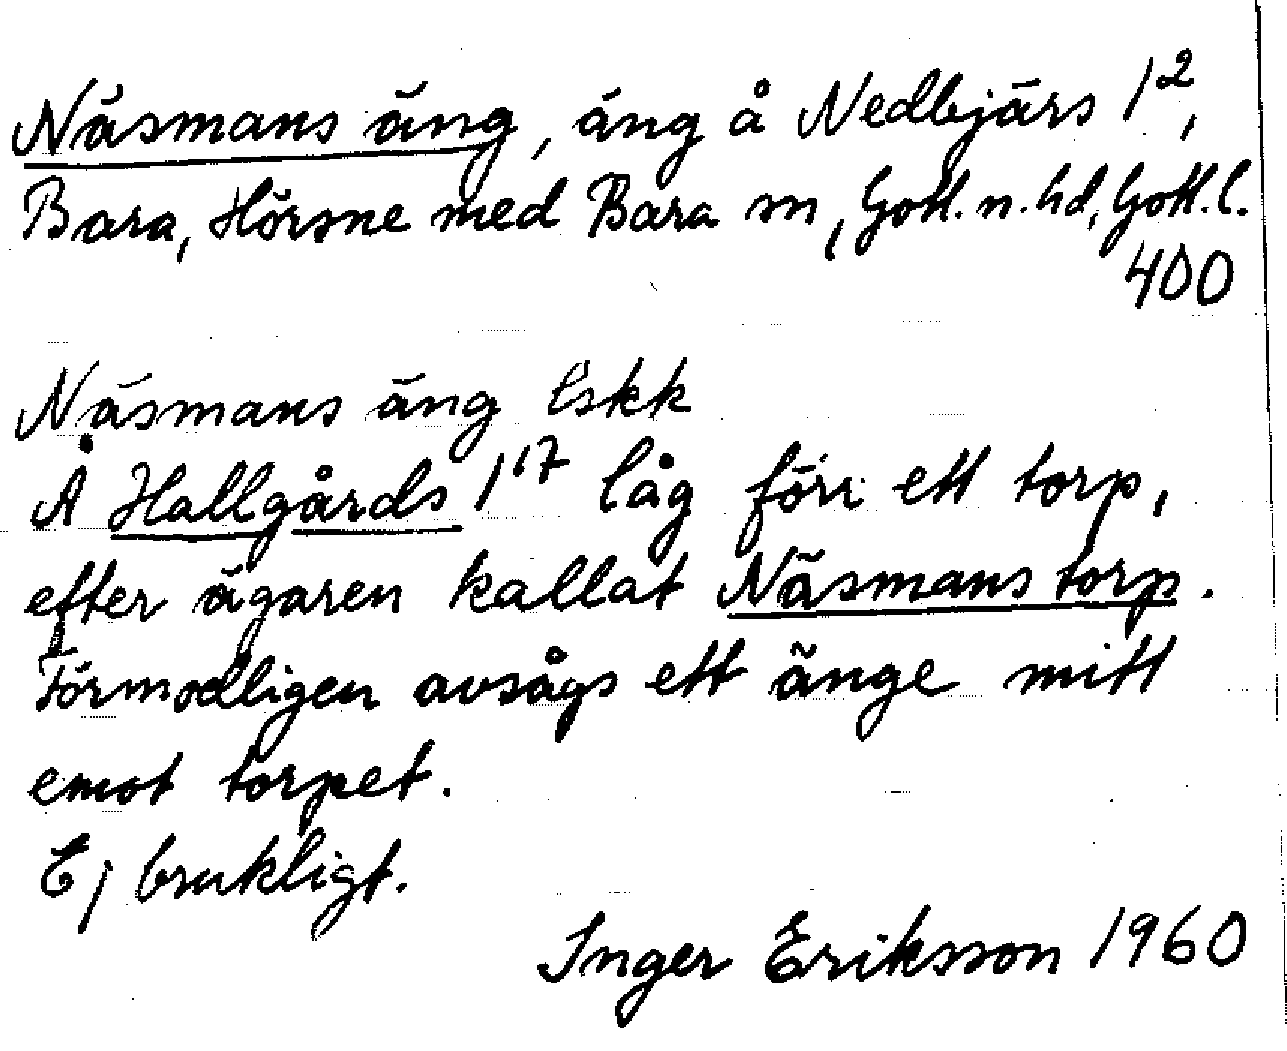 Näsmans äng, äng å Nedbjärs 1²,
Bara, Hörsne med Bara sn, Gotl. n. hd, Gotl. l.
400
Näsmans äng Eskk
Å Hallgårds 1¹⁷ låg förr ett torp,
efter ägaren kallat Näsmans torp.
Förmodligen avsågs ett änge mitt
emot torpet.
Ej brukligt.
Inger Eriksson 1960